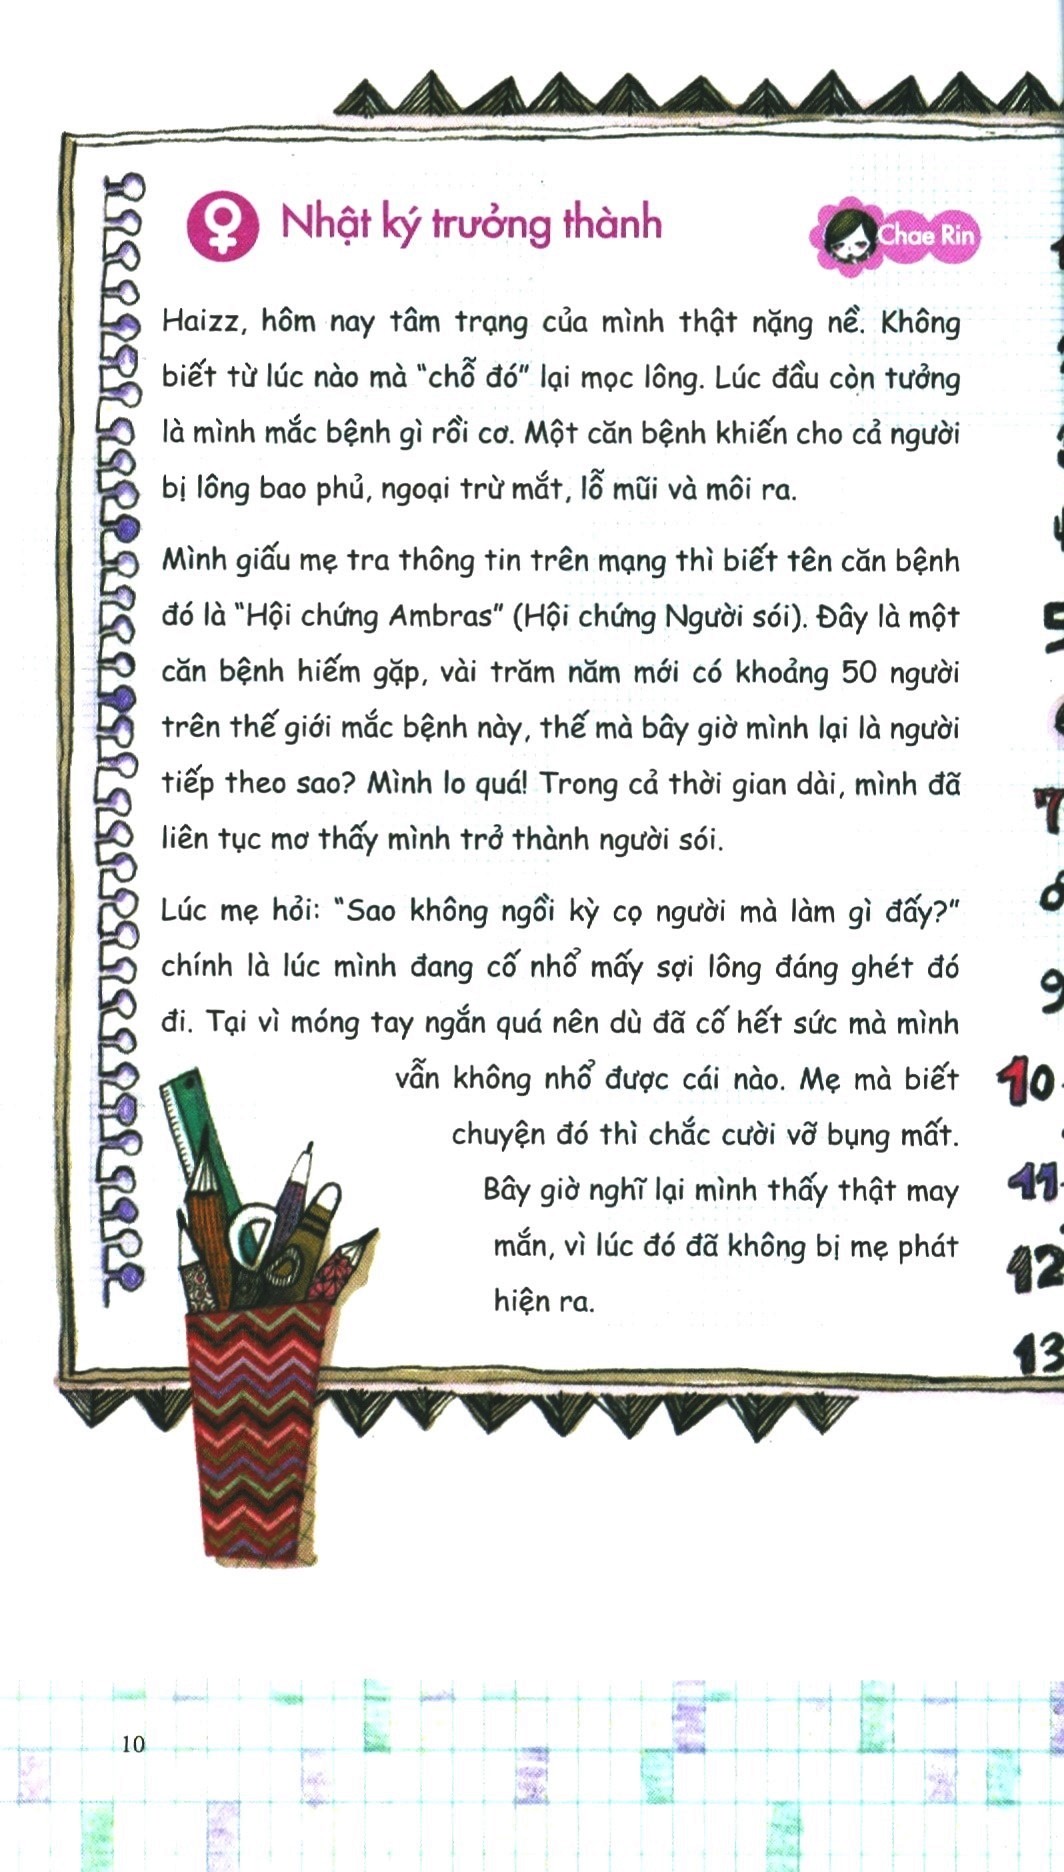 Nhật ký trưởng thành
Chae Rin
Haizz, hôm nay tâm trạng của mình thật nặng nề. Không
biết từ lúc nào mà "chỗ đó" lại mọc lông. Lúc đầu còn tưởng
là mình mắc bệnh gì rồi cơ. Một căn bệnh khiến cho cả người
bị lông bao phủ, ngoại trừ mắt, lỗ mũi và môi ra.
Mình giấu mẹ tra thông tin trên mạng thì biết tên căn bệnh
đó là "Hội chứng Ambras" (Hội chứng Người sói). Đây là một
căn bệnh hiếm gặp, vài trăm năm mới có khoảng 50 người
trên thế giới mắc bệnh này, thế mà bây giờ mình lại là người
tiếp theo sao? Mình lo quá! Trong cả thời gian dài, mình đã
liên tục mơ thấy mình trở thành người sói.
Lúc mẹ hỏi: "Sao không ngồi kỳ cọ người mà làm gì đấy?"
chính là lúc mình đang cố nhổ mấy sợi lông đáng ghét đó
đi. Tại vì móng tay ngắn quá nên dù đã cố hết sức mà mình
vẫn không nhổ được cái nào. Mẹ mà biết
chuyện đó thì chắc cười vỡ bụng mất.
Bây giờ nghĩ lại mình thấy thật may
mắn, vì lúc đó đã không bị mẹ phát
hiện ra.
7
8
9
10
11
12
13
10